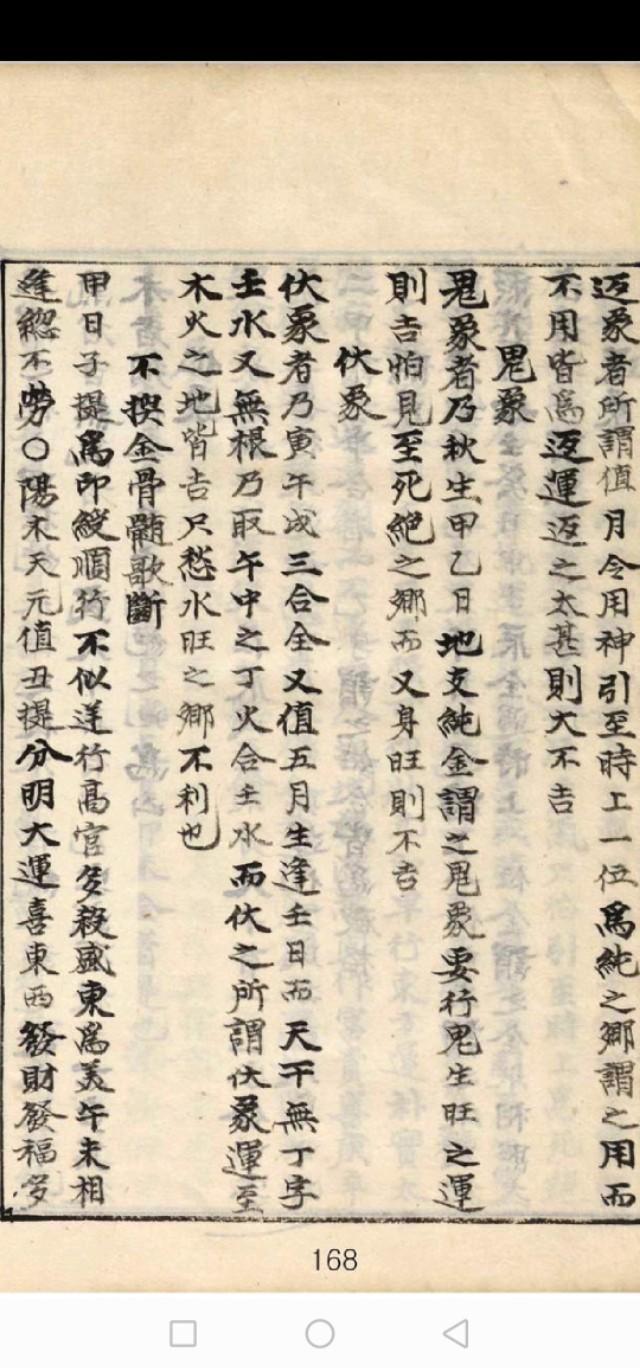 返象者所謂值月令用神引至時上一位爲純之鄉謂之用而
不用皆爲返運返之太甚則大不吉
鬼象
鬼象者乃秋生甲乙日地支純金謂之鬼象要行鬼生旺之運
則吉怕見至死絕之鄉而又身旺則不吉
伏象
伏象者乃寅午戌三合全又值五月生逢壬日而天干無丁字
壬水又無根乃取午中之丁火合壬水而伏之所謂伏象運至
木火之地皆吉只愁水旺之鄉不利也
不換金骨髓歌斷
甲日子提爲印綬順行不似逆行高官多殺盛東爲美午未相
逢總不勞○陽木天元值丑提分明大運喜東西發財發福多
168